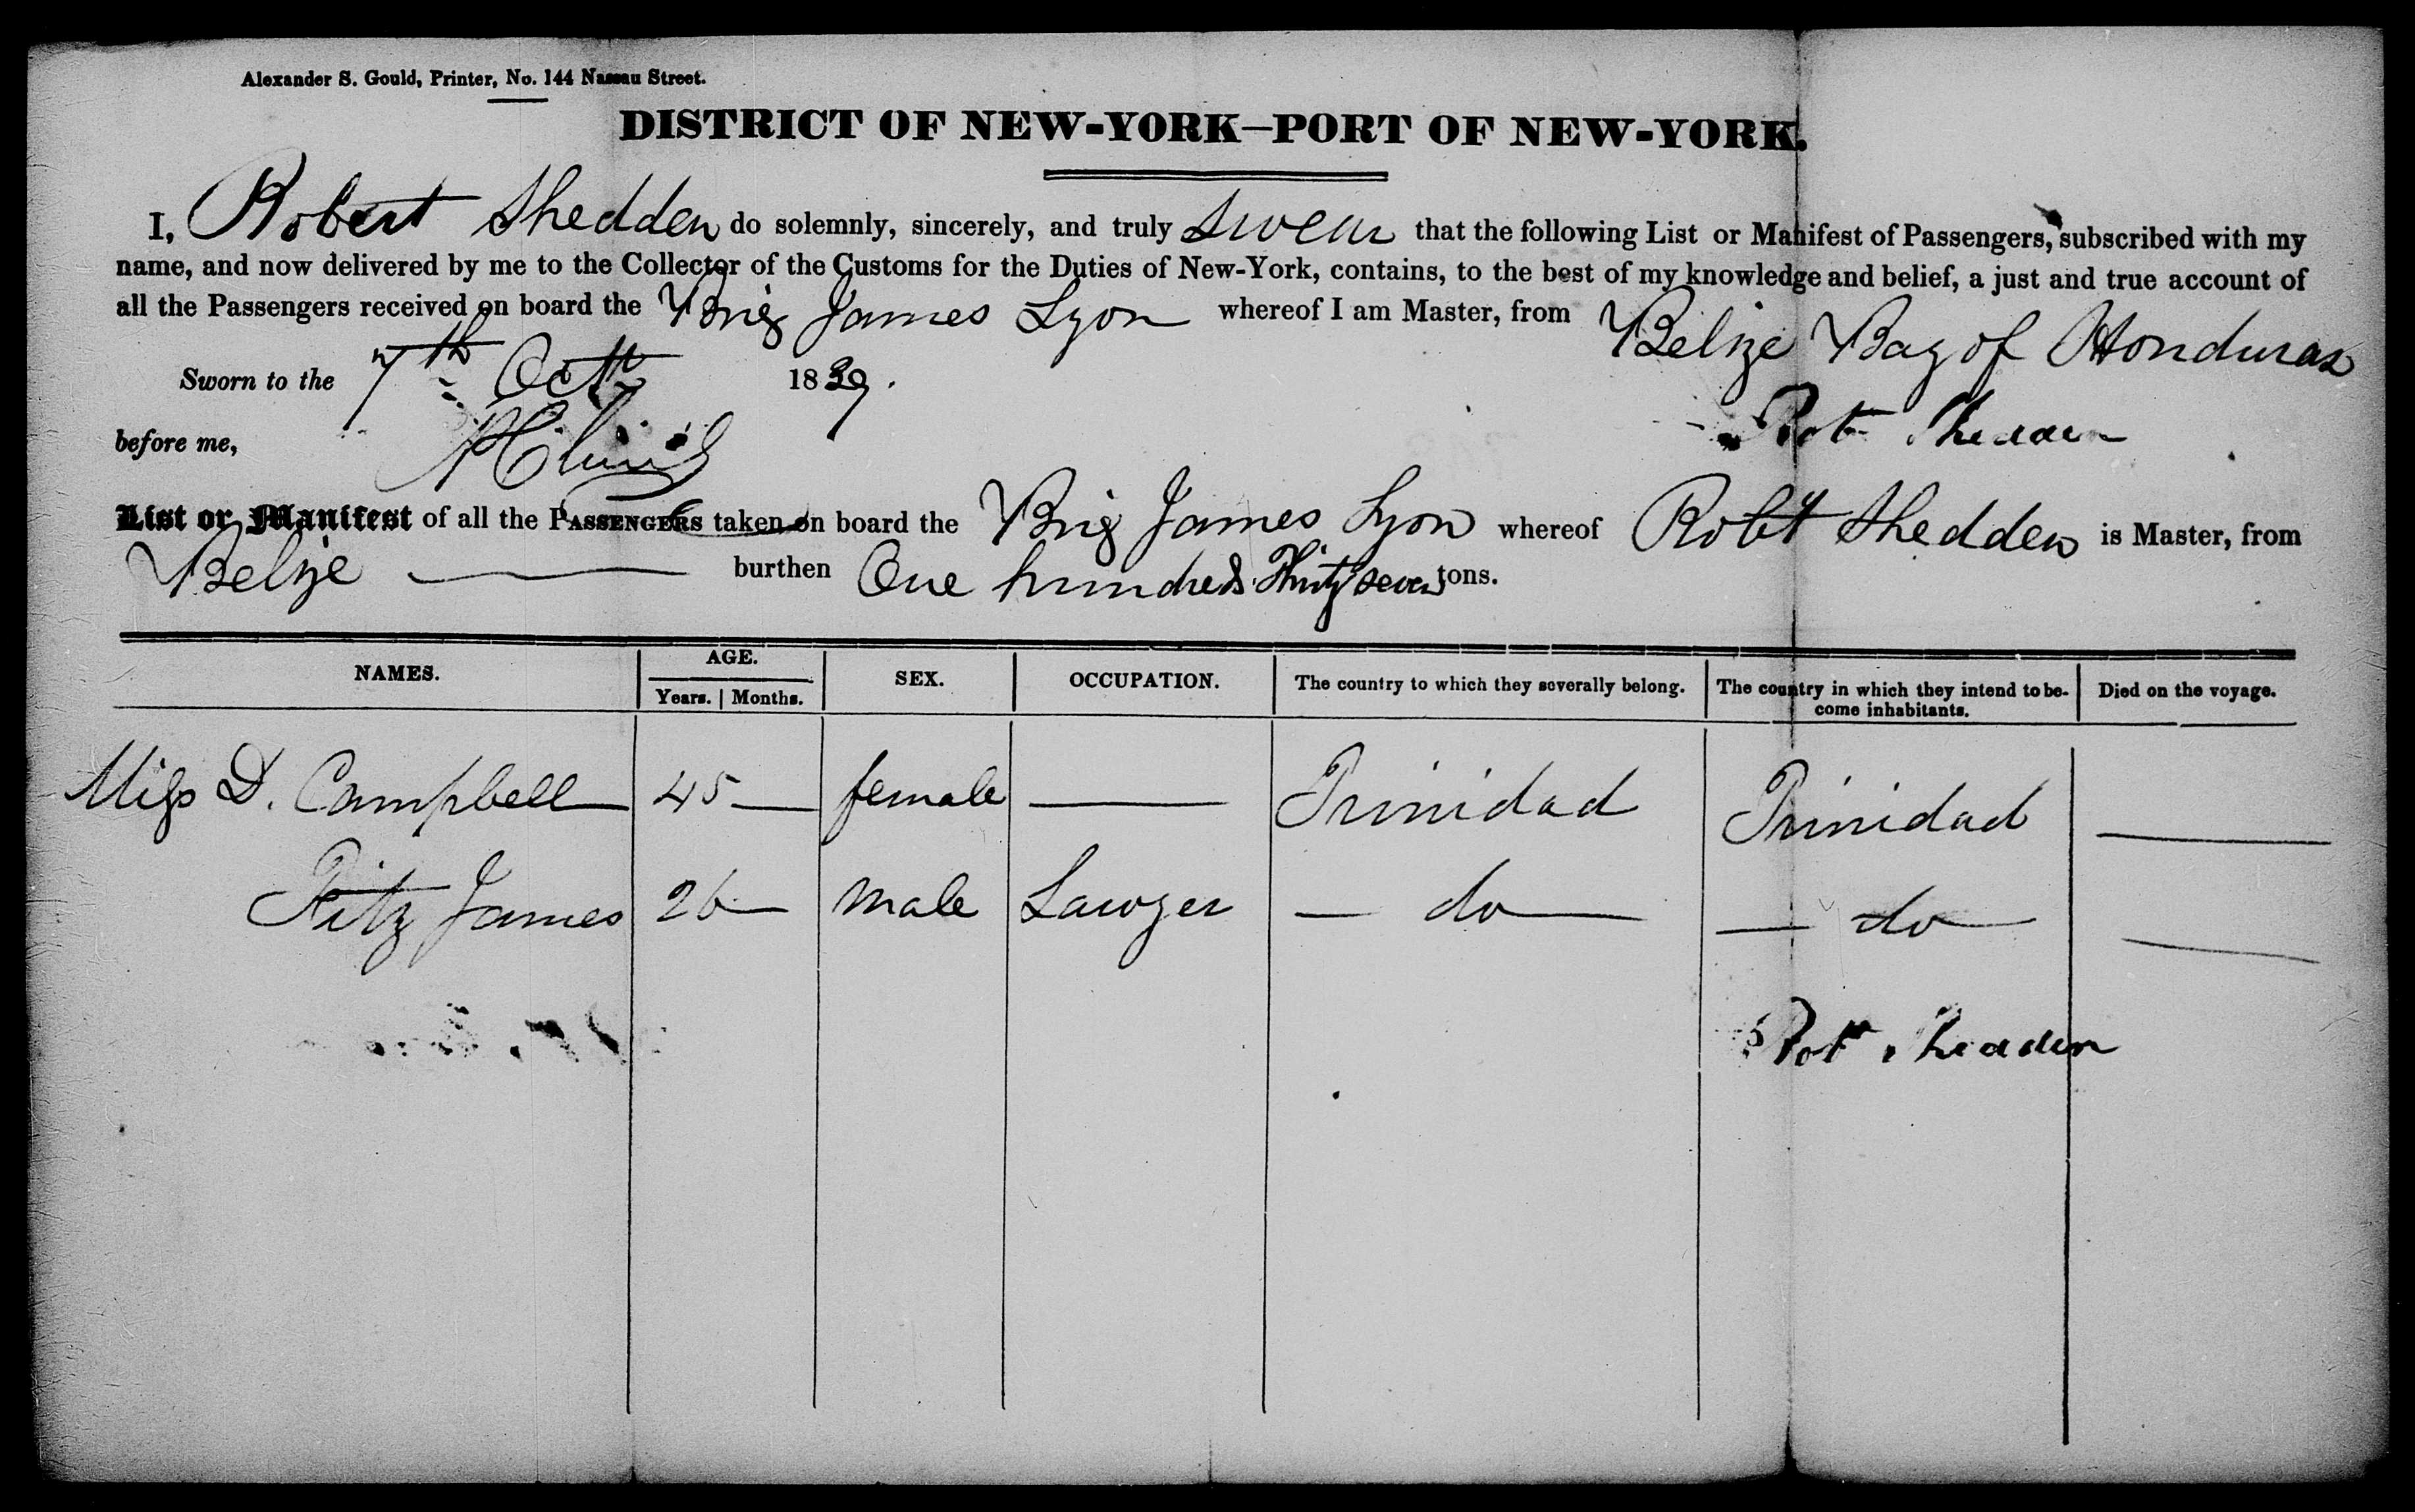 Alexander S. Gould, Printer, No. 144 Nassau Street.
DISTRICT OF NEW-YORK—PORT OF NEW-YORK.
I, Robert Shedden do solemnly, sincerely, and truly swear that the following List or Manifest of Passengers, subscribed with my
name, and now delivered by me to the Collector of the Customs for the Duties of New-York, contains, to the best of my knowledge and belief, a just and true account of
all the Passengers received on board the Brig James Lyon whereof I am Master, from Belize Bay of Honduras
Sworn to the 7th Octr 1839.
before me,
Robt Shedden
List or Manifest of all the PASSENGERS taken on board the Brig James Lyon whereof Robt Shedden is Master, from
Belize — burthen One hundred Thirty seven tons.
NAMES. AGE. Years. | Months. SEX. OCCUPATION. The country to which they severally belong. The country in which they intend to be-come inhabitants. Died on the voyage.
Miss D. Campbell 45 — female — Trinidad Trinidad —
Fitz James 26 — male Lawyer — do — — do — —
Robt Shedden